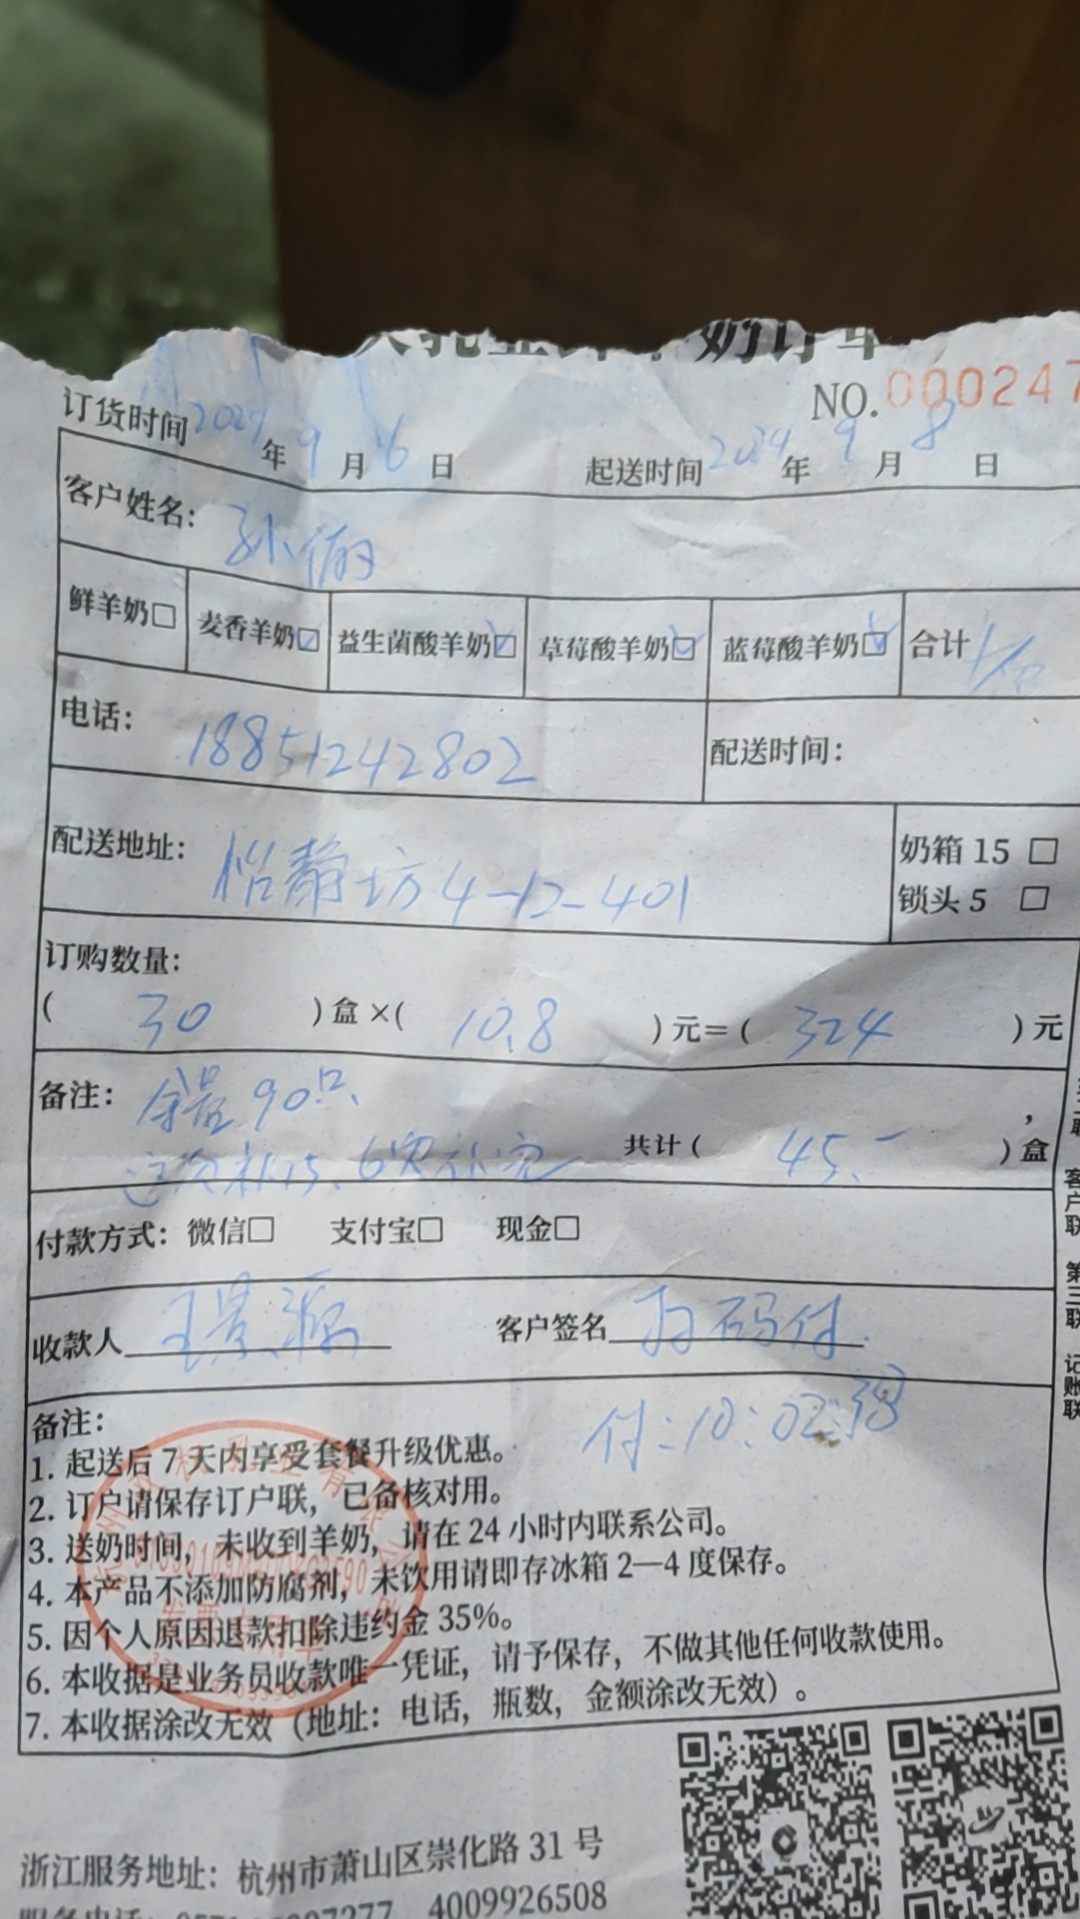 奶订单
NO.000247
订货时间 2024 年 9 月 6 日 起送时间 2024 年 9 月 8 日
客户姓名: 孙俏
鲜羊奶□ 麦香羊奶☑ 益生菌酸羊奶☑ 草莓酸羊奶☑ 蓝莓酸羊奶☑ 合计
电话: 18851242802 配送时间:
配送地址: 怡静坊 4-12-401 奶箱 15 □
锁头 5 □
订购数量:
( 30 )盒×( 10.8 )元=( 324 )元
备注: 余 90只,
这次补15、6次补完 共计( 45.- )盒
付款方式: 微信□ 支付宝□ 现金□
收款人 王景源 客户签名 扫码付.
付:10:02:38
备注:
1. 起送后 7 天内享受套餐升级优惠。
2. 订户请保存订户联，已备核对用。
3. 送奶时间，未收到羊奶，请在 24 小时内联系公司。
4. 本产品不添加防腐剂，未饮用请即存冰箱 2—4 度保存。
5. 因个人原因退款扣除违约金 35%。
6. 本收据是业务员收款唯一凭证，请予保存，不做其他任何收款使用。
7. 本收据涂改无效（地址: 电话，瓶数，金额涂改无效）。
客户联 第三联 记账联
浙江服务地址: 杭州市萧山区崇化路 31 号
4009926508